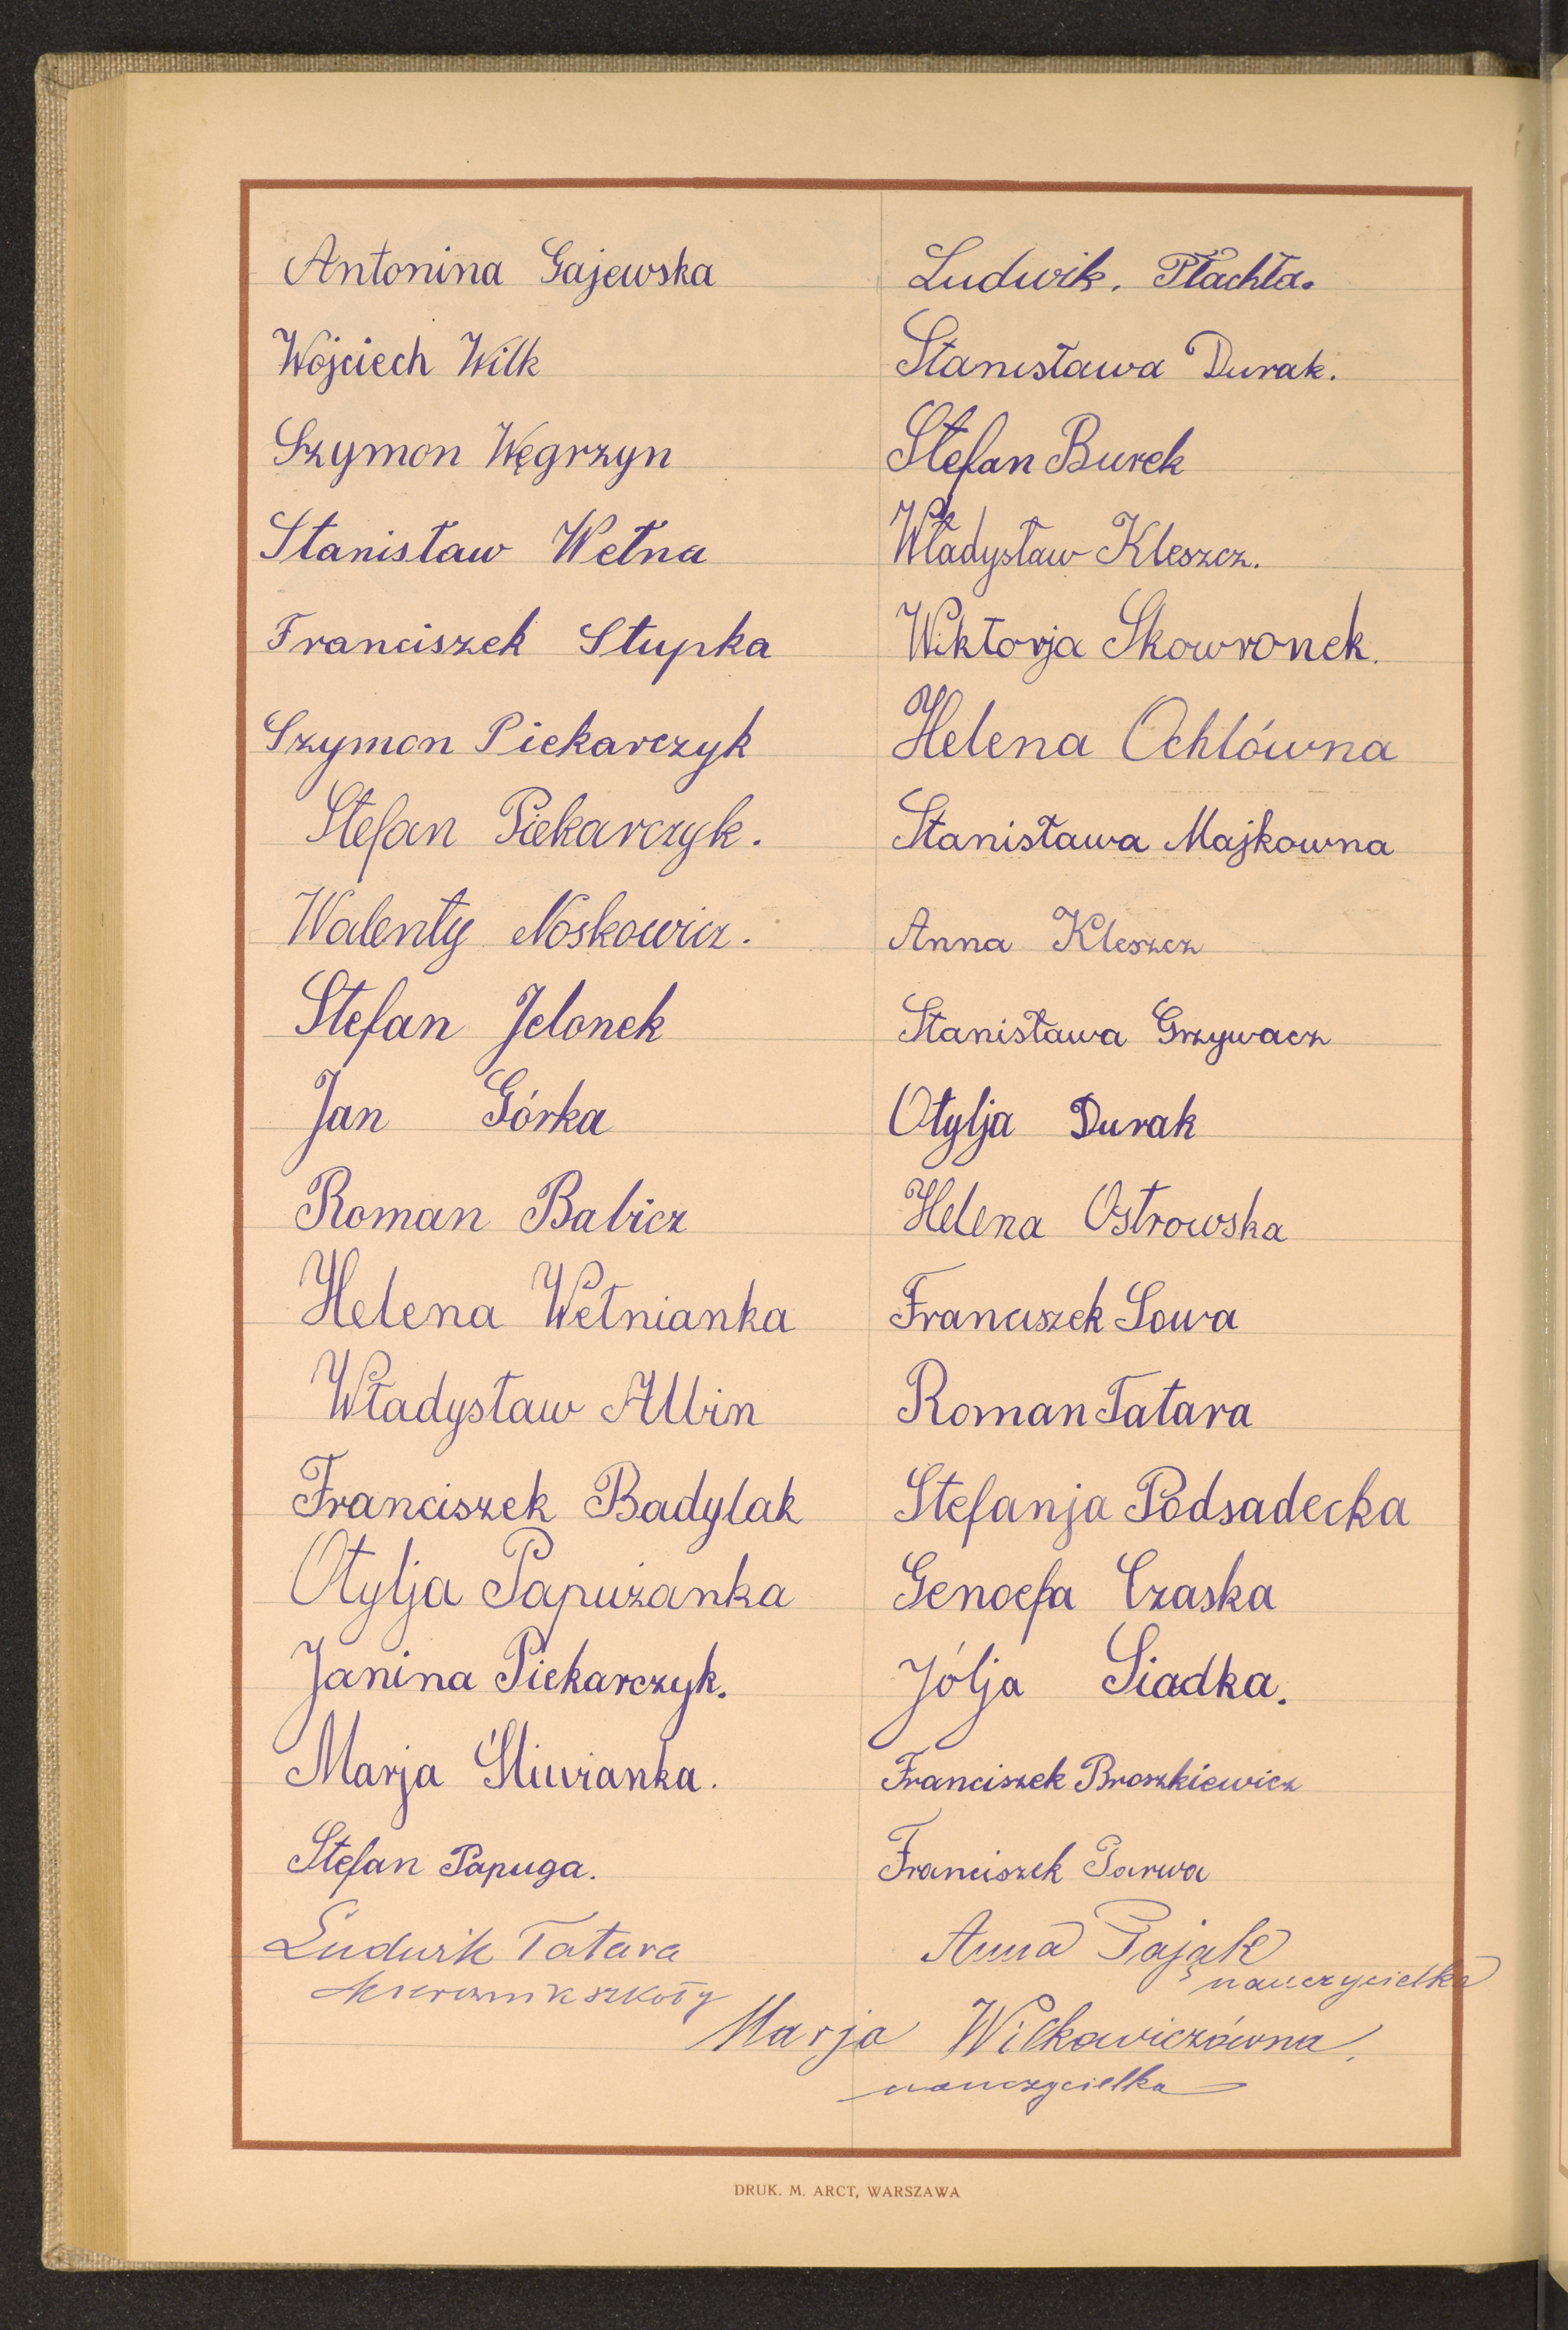 Antonina Gajewska
Wojciech Wilk
Szymon Węgrzyn
Stanisław Wełna
Franciszek Słupka
Szymon Piekarczyk
Stefan Piekarczyk.
Walenty Noskowicz.
Stefan Jelonek
Jan Górka
Roman Babicz
Helena Wełnianka
Władysław Albin
Franciszek Badylak
Otylja Papużanka
Janina Piekarczyk.
Marja Śliwianka.
Stefan Papuga.
Ludwik Tatara
kierownik szkoły
Ludwik. Płachta.
Stanisława Durak.
Stefan Burek
Władysław Kleszcz.
Wiktorja Skowronek.
Helena Ochlówna
Stanisława Majkowna
Anna Kleszcz
Stanisława Grzywacz
Otylja Durak
Helena Ostrowska
Franciszek Sowa
Roman Tatara
Stefanja Podsadecka
Genoefa Czaska
Jólja Siadka.
Franciszek Broszkiewicz
Franciszek Parwa
Anna Pająk
nauczycielka
Marja Wilkowiczówna,
nauczycielka
DRUK. M. ARCT, WARSZAWA